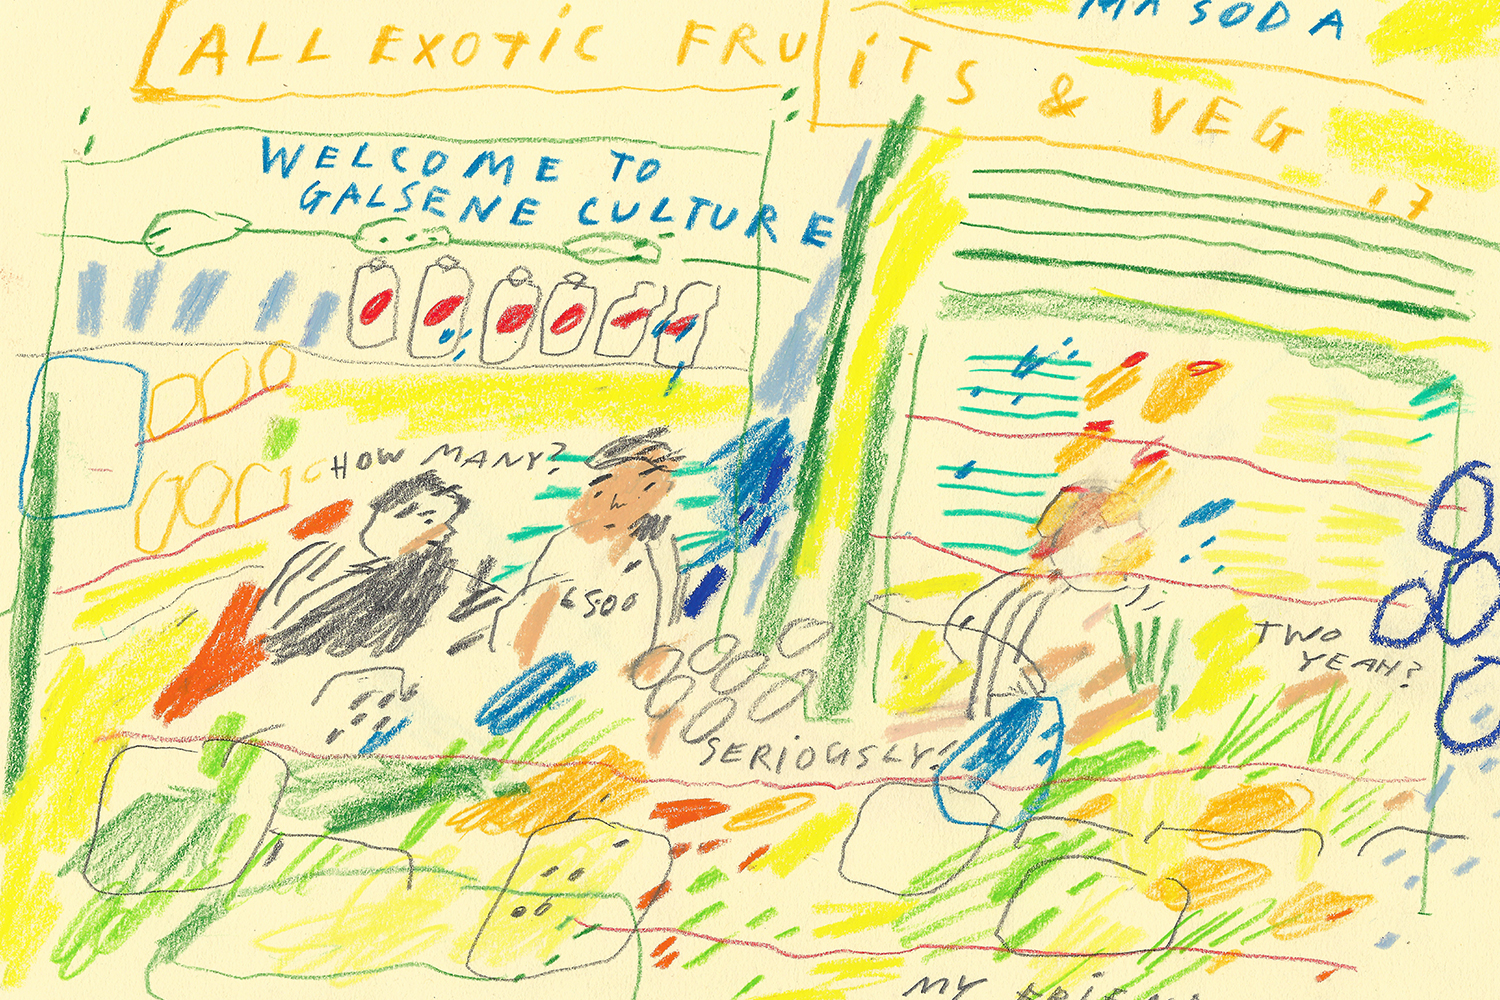 MA SODA
ALL EXOTIC FRUITS & VEG
17
WELCOME TO
GALSENE CULTURE
HOW MANY?
6500
TWO
YEAH?
SERIOUSLY?
MY FRIEND